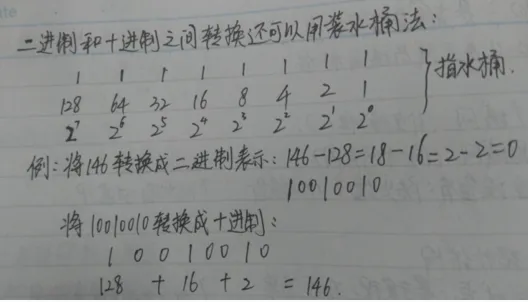 二进制和十进制之间转换还可以用装水桶法:
1 1 1 1 1 1 1 1
128 64 32 16 8 4 2 1 }指水桶.
2⁷ 2⁶ 2⁵ 2⁴ 2³ 2² 2¹ 2⁰
例:将146转换成二进制表示:146-128=18-16=2-2=0
10010010
将10010010转换成十进制:
1 0 0 1 0 0 1 0
128 + 16 + 2 = 146.